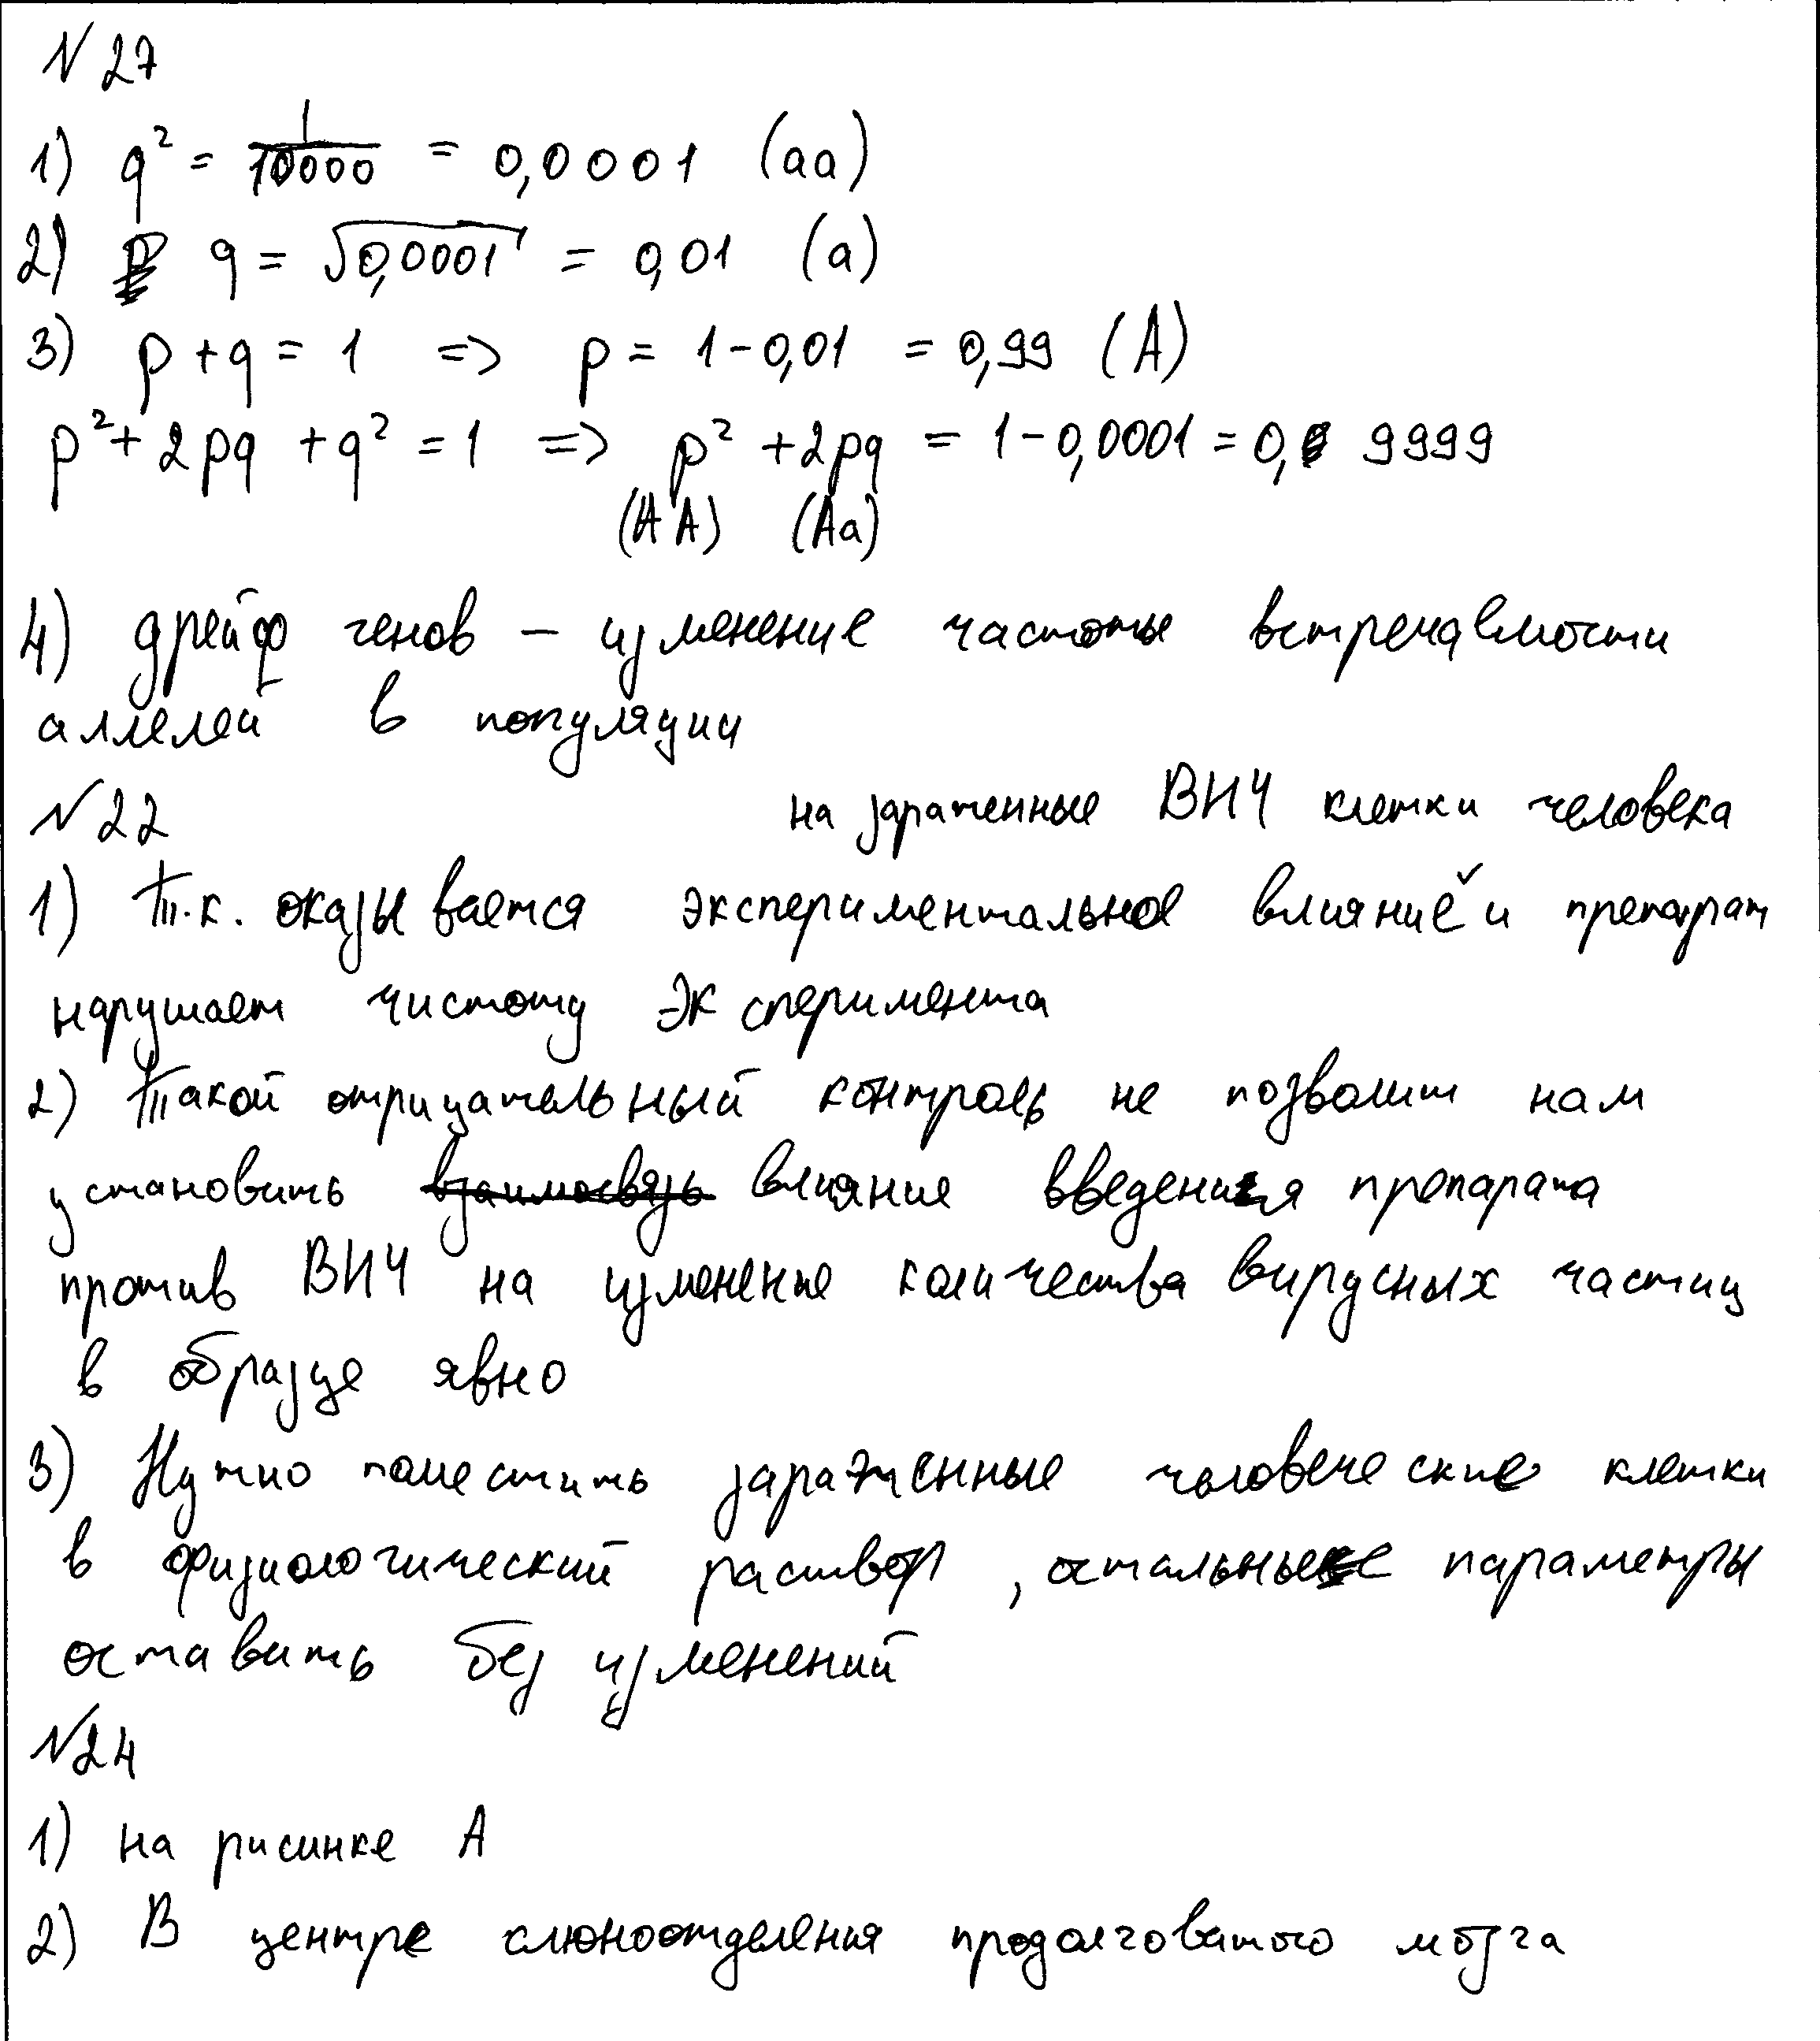 №27
1) q² = 1/10000 = 0,0001 (аа)
2) q = √0,0001 = 0,01 (а)
3) p + q = 1 => p = 1 - 0,01 = 0,99 (А)
p² + 2pq + q² = 1 => p² + 2pq = 1 - 0,0001 = 0,9999
(АА) (Аа)
4) дрейф генов — изменение частоты встречаемости
аллелей в популяции
№22
на зараженные ВИЧ клетки человека
1) Т.к. оказывается экспериментальное влияние ✓ и препарат
нарушает чистоту эксперимента
2) Такой отрицательный контроль не позволит нам
установить взаимосвязь влияние введения препарата
против ВИЧ на изменение количества вирусных частиц
в образце явно
3) Нужно поместить зараженные человеческие клетки
в физиологический раствор, остальные параметры
оставить без изменений
№24
1) на рисинке А
2) В центре слюноотделения продолговатого мозга